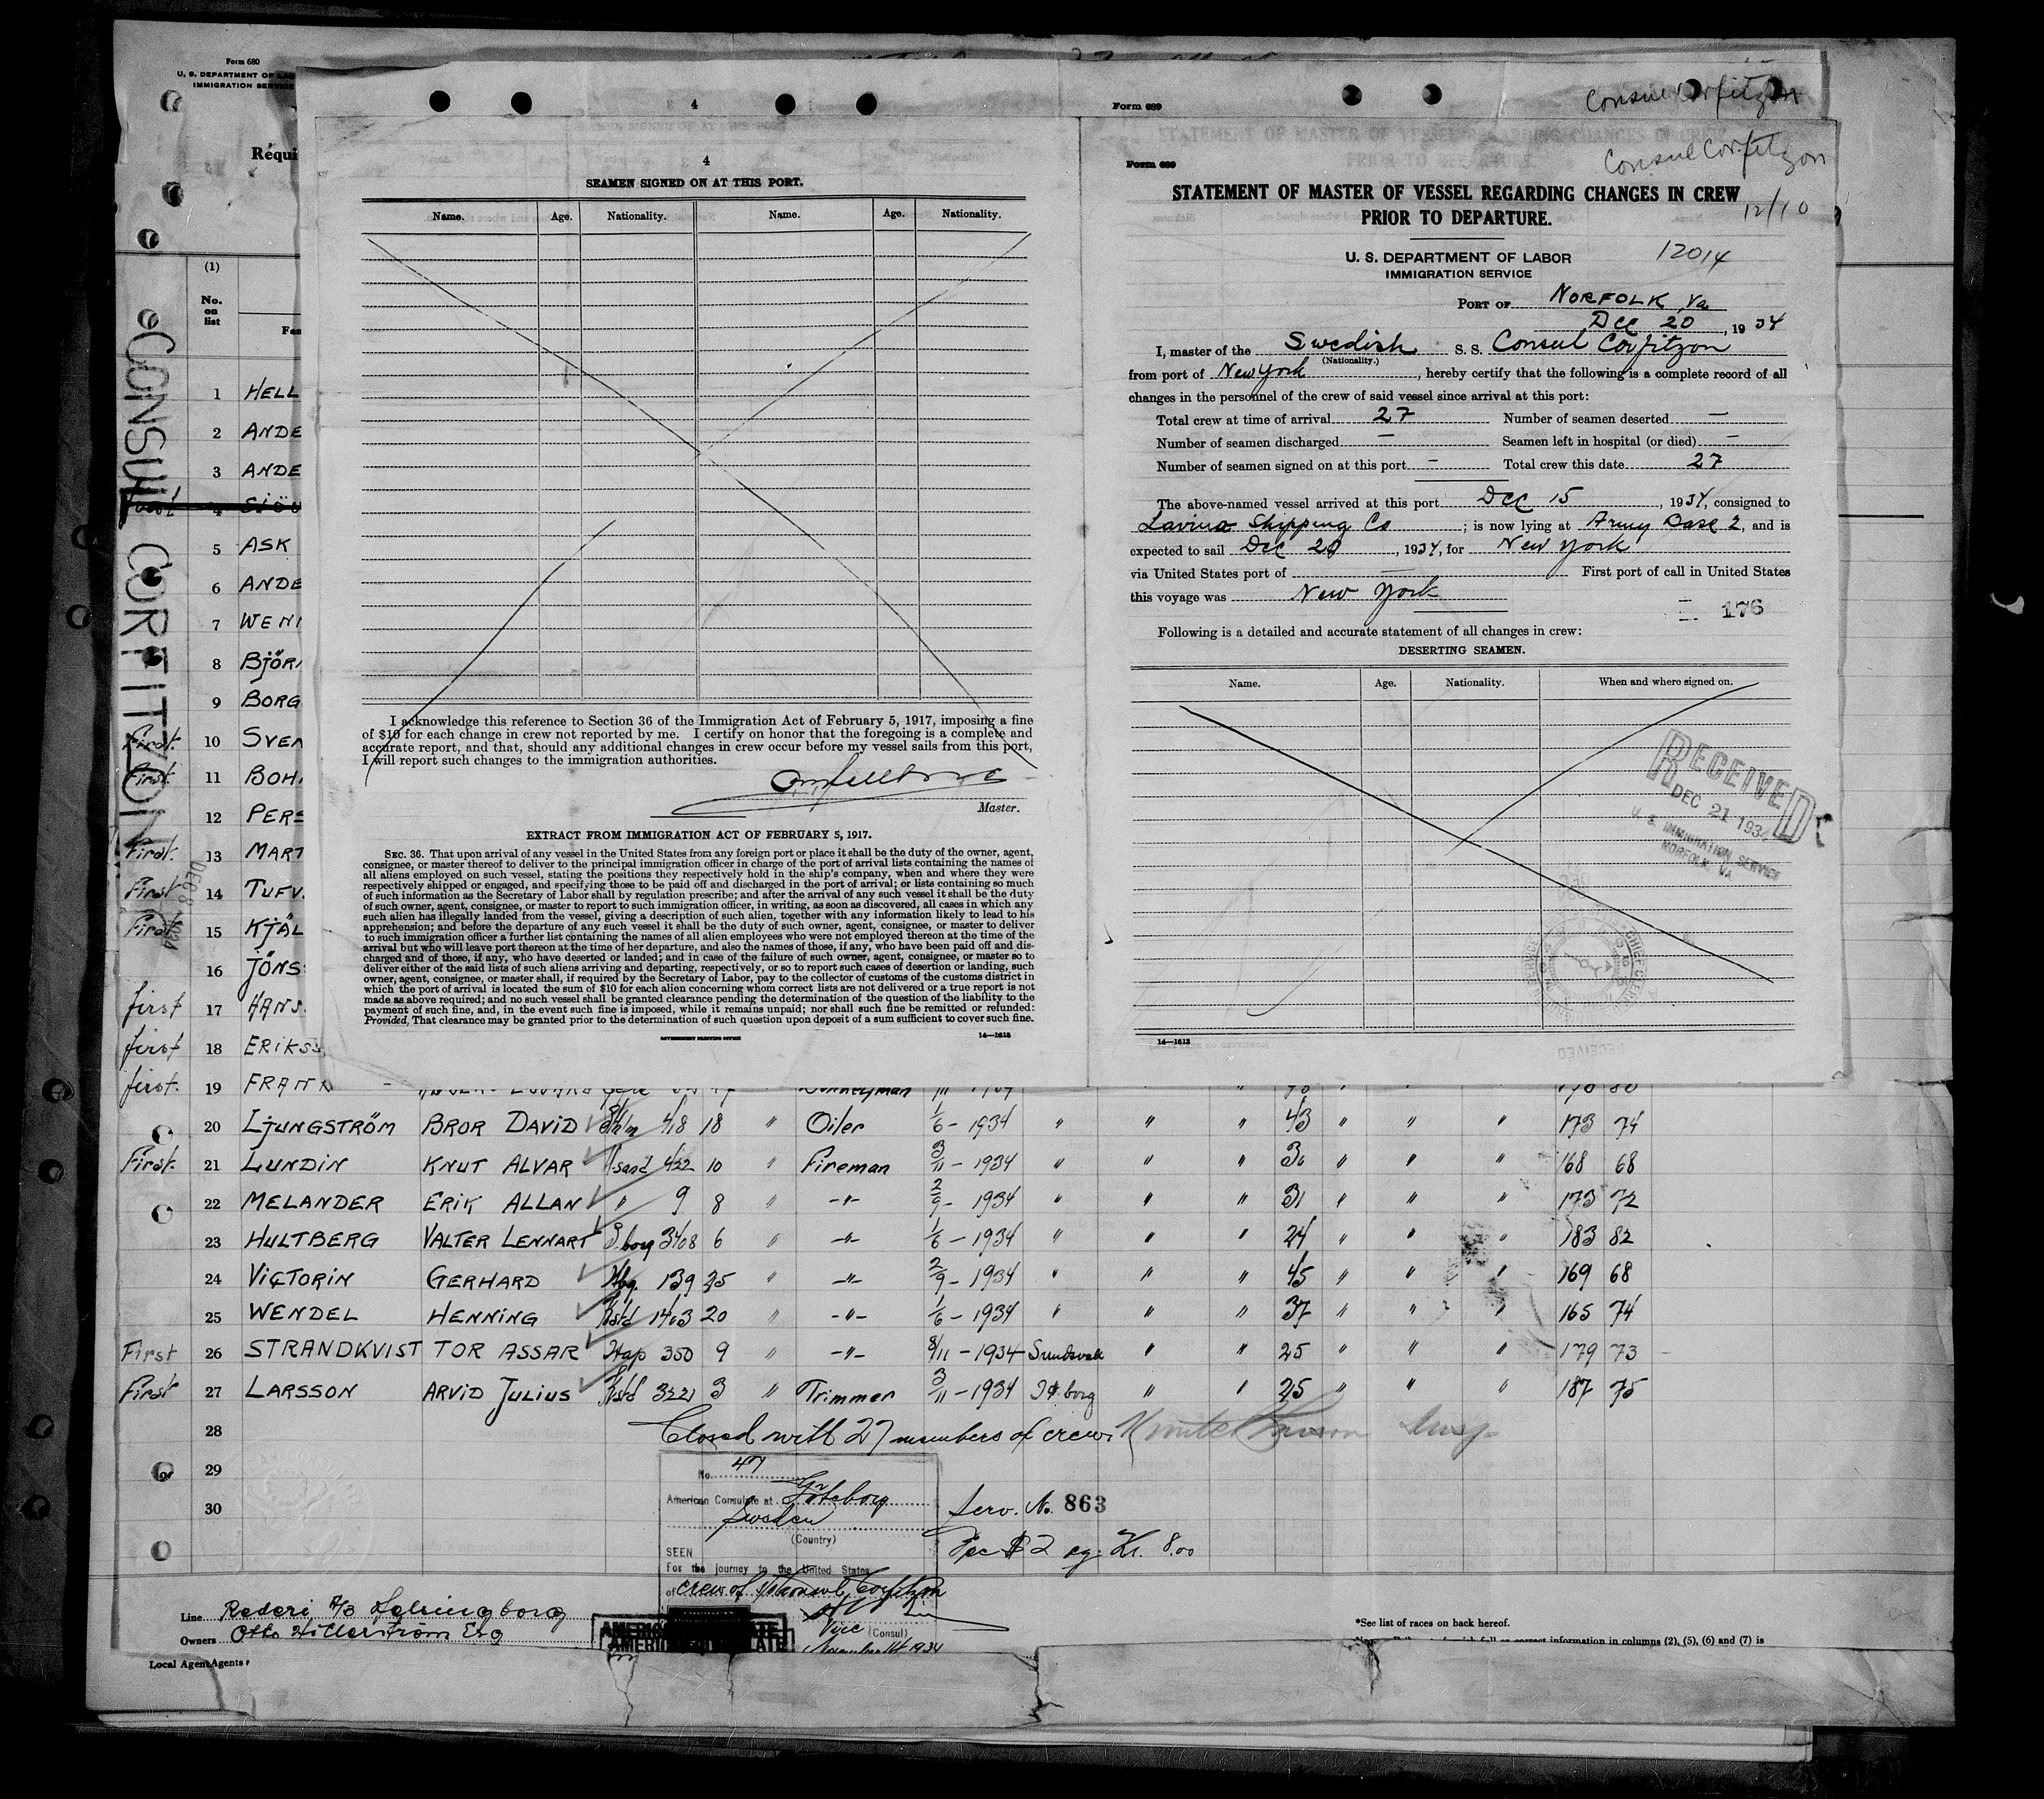 Form 680
U. S. DEPARTMENT OF LAB
IMMIGRATION SERVICE
Requi
(1)
No.
on
list
CONSUL CORFITZON
1 HELL
2 ANDE
3 ANDE
4
5 ASK
6 ANDE
7 WENN
8 BJÖR
9 BORG
First. 10 SVEN
First 11 BOH
12 PERS
First. 13 MART
First 14 TUFV
First 15 KJÄL
16 JÖNS
first 17 HANS
first 18 ERIKSS
first. 19 FRAN
4
4
SEAMEN SIGNED ON AT THIS PORT.
Name. Age. Nationality. Name. Age. Nationality.
I acknowledge this reference to Section 36 of the Immigration Act of February 5, 1917, imposing a fine
of $10 for each change in crew not reported by me. I certify on honor that the foregoing is a complete and
accurate report, and that, should any additional changes in crew occur before my vessel sails from this port,
I will report such changes to the immigration authorities.
Master.
EXTRACT FROM IMMIGRATION ACT OF FEBRUARY 5, 1917.
SEC. 36. That upon arrival of any vessel in the United States from any foreign port or place it shall be the duty of the owner, agent,
consignee, or master thereof to deliver to the principal immigration officer in charge of the port of arrival lists containing the names of
all aliens employed on such vessel, stating the positions they respectively hold in the ship's company, when and where they were
respectively shipped or engaged, and specifying those to be paid off and discharged in the port of arrival; or lists containing so much
of such information as the Secretary of Labor shall by regulation prescribe; and after the arrival of any such vessel it shall be the duty
of such owner, agent, consignee, or master to report to such immigration officer, in writing, as soon as discovered, all cases in which any
such alien has illegally landed from the vessel, giving a description of such alien, together with any information likely to lead to his
apprehension; and before the departure of any such vessel it shall be the duty of such owner, agent, consignee, or master to deliver
to such immigration officer a further list containing the names of all alien employees who were not employed thereon at the time of the
arrival but who will leave port thereon at the time of her departure, and also the names of those, if any, who have been paid off and dis-
charged and of those, if any, who have deserted or landed; and in case of the failure of such owner, agent, consignee, or master so to
deliver either of the said lists of such aliens arriving and departing, respectively, or so to report such cases of desertion or landing, such
owner, agent, consignee, or master shall, if required by the Secretary of Labor, pay to the collector of customs of the customs district in
which the port of arrival is located the sum of $10 for each alien concerning whom correct lists are not delivered or a true report is not
made as above required; and no such vessel shall be granted clearance pending the determination of the question of the liability to the
payment of such fine, and, in the event such fine is imposed, while it remains unpaid; nor shall such fine be remitted or refunded:
Provided, That clearance may be granted prior to the determination of such question upon deposit of a sum sufficient to cover such fine.
GOVERNMENT PRINTING OFFICE 14—1613
Form 689
Consul Corfitzon
Form 689
Consul Corfitzon
STATEMENT OF MASTER OF VESSEL REGARDING CHANGES IN CREW
PRIOR TO DEPARTURE.
12/10
U. S. DEPARTMENT OF LABOR
IMMIGRATION SERVICE
12014
PORT OF NORFOLK, Va
Dec 20, 1934
I, master of the Swedish S. S. Consul Corfitzon
(Nationality.)
from port of New York, hereby certify that the following is a complete record of all
changes in the personnel of the crew of said vessel since arrival at this port:
Total crew at time of arrival 27 Number of seamen deserted —
Number of seamen discharged — Seamen left in hospital (or died) —
Number of seamen signed on at this port — Total crew this date 27
The above-named vessel arrived at this port Dec 15, 1934, consigned to
Lavino Shipping Co; is now lying at Army Base 2, and is
expected to sail Dec 20, 1934, for New York
via United States port of — First port of call in United States
this voyage was New York
176
Following is a detailed and accurate statement of all changes in crew:
DESERTING SEAMEN.
Name. Age. Nationality. When and where signed on.
RECEIVED
DEC 21 1934
U. S. IMMIGRATION SERVICE
NORFOLK, VA
14—1613
20 LJUNGSTRÖM BROR DAVID 418 18 " Oiler 1/6 - 1934 " " " 43 " " " 173 74
First. 21 LUNDIN KNUT ALVAR 422 10 " Fireman 3/11 - 1934 " " " 30 " " " 168 68
22 MELANDER ERIK ALLAN " 9 8 " -"- 2/9 - 1934 " " " 31 " " " 173 72
23 HULTBERG VALTER LENNART G.borg 3408 6 " -"- 1/6 - 1934 " " " 24 " " " 183 82
24 VICTORIN GERHARD Hbg. 139 25 " -"- 2/9 - 1934 " " " 45 " " " 169 68
25 WENDEL HENNING 1403 20 " -"- 1/6 - 1934 " " " 37 " " " 165 74
First 26 STRANDKVIST TOR ASSAR 350 9 " -"- 8/11 - 1934 Sundsvall " " 25 " " " 179 73
First 27 LARSSON ARVID JULIUS 3221 3 " Trimmer 3/11 - 1934 G.borg " " 25 " " " 187 75
28 Closed with 27 members of crew.
29
30
No. 47
American Consulate at Göteborg
Sweden
(Country)
SEEN
For the journey to the United States
of crew of Consul Corfitzon
Vice (Consul)
1934
Serv. No. 863
Fee $2 eq. Kr. 8.00
Line Rederi A/B Helsingborg
Owners Otto Hillerström Esq
Local Agent Agents
*See list of races on back hereof.
information in columns (2), (5), (6) and (7) is